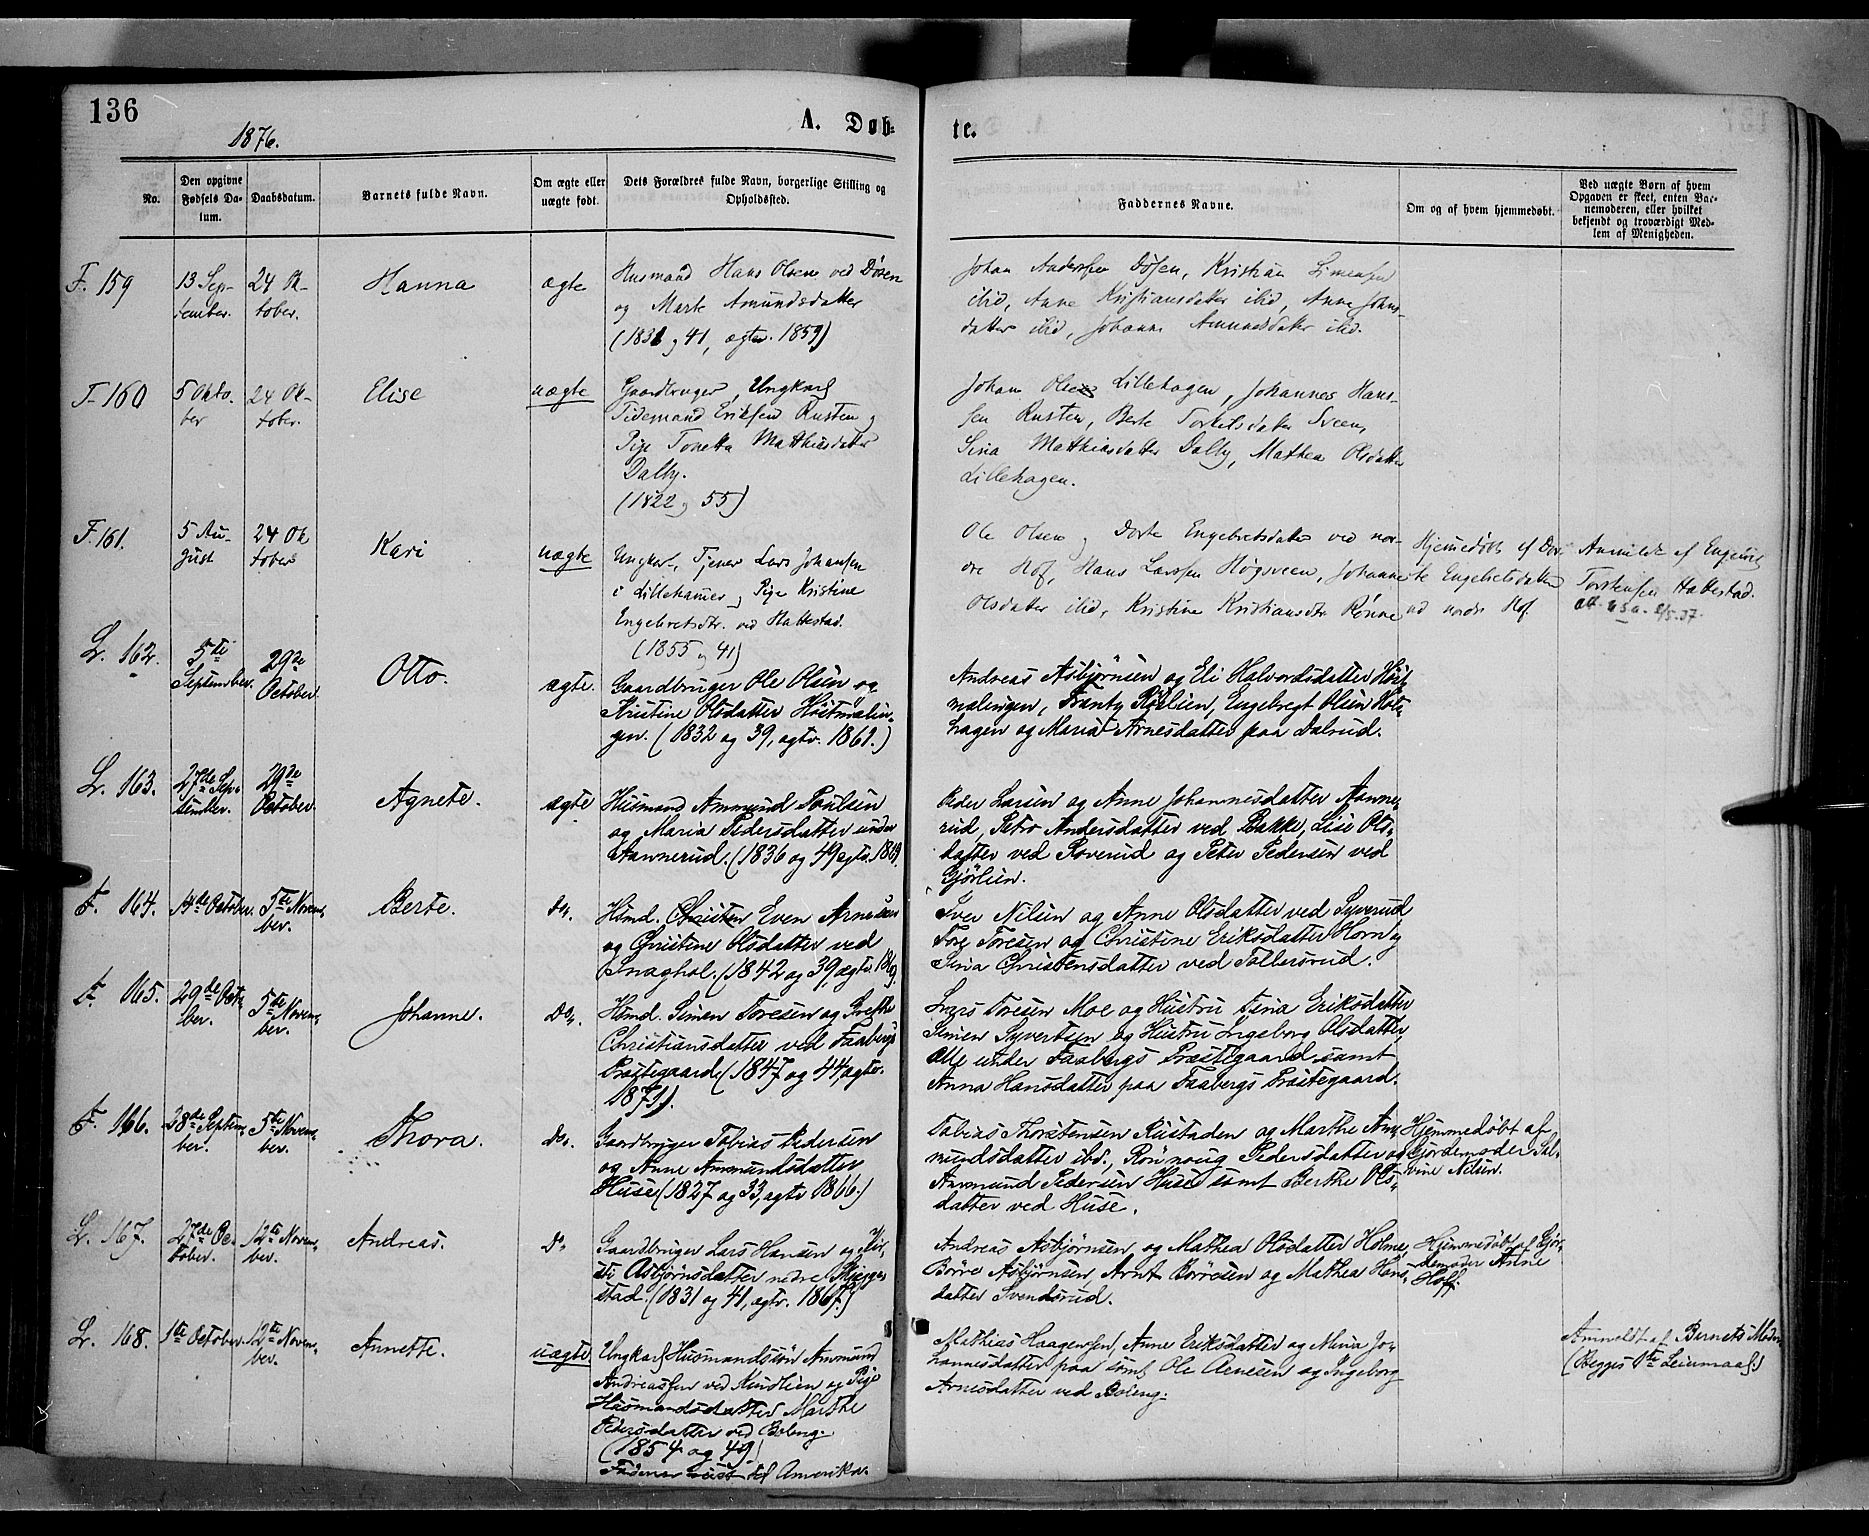 136
1876.
A. Døb-
te.
No.
Den opgivne
Fødsels Da-
tum.
Daabsdatum.
Barnets fulde Navn.
Om ægte eller
uægte født.
Dets Forældres fulde Navn, borgerlige Stilling og
Opholdssted.
Faddernes Navne.
Om og af hvem hjemmedøbt.
Ved uægte Børn af hvem
Opgaven er skeet, enten Bar-
nemoderen, eller hvilket
bekjendt og troværdigt Med-
lem af Menigheden.
F. 159
13 Sep-
tember.
24 Ok-
tober.
Hanna
ægte
Husmand Hans Olsen ved Døsen
og Marte Amundsdatter
(1831 og 41, ægtev. 1859)
Johan Andersen Døsen, Kristian Simensen
ibid, Anne Kristiansdatter ibid, Anne Johns-
datter ibid, Johanne Amundsdatter ibid.
F 160
5 Okto-
ber
24 Ok-
tober.
Elise
uægte
Gaardbruger, Ungkarl
Tidemand Eriksen Rusten og
Pige Tonetta Matthiasdatter
Dalby.
(1822 og 55)
Johan Olsen Lillehagen, Johannes Hans-
sen Rusten, Berte Torkelsdatter Sveen,
Sina Matthiasdatter Dalby, Mathea Olsdatter
Lillehagen.
F. 161.
5 Au-
gust
24 Ok
tober
Kari
uægte
Ungkarl, Tjener Lars Johansen
i Lillehamer og Pige Kristine
Engebretsdtr. ved Hattestad.
(1855 og 41)
Ole Olsen og Dorte Engebretsdatter ved nor-
dre Hof, Hans Larssen Høgsveen, Johanne
Olsdatter ibid, Kristine Kristiansdtr Rønne
Hjemmedøbt af Dor-
te Engebretsdatter
ved nordr Hof
Anmeldt af Engebret
Torstensen Hattestad.
Att. 2/5-37.
L. 162.
5te
September.
29de
October.
Otto.
ægte.
Gaardbruger Ole Olsen og
Kristine Olsdatter Høistmælin-
gen. (1832 og 39, ægtv. 1861.)
Andreas Asbjørnsen og Eli Halvorsdatter Høist
mælingen, Frants Røslien, Engebregt Olsen Hols-
hagen og Maria Arnesdatter paa Dalrud.
L. 163.
27de Sep-
tember.
29de
October.
Agnete.
ægte
Husmand Ammund Poulsen
og Maria Pedersdatter under
Aannerud. (1836 og 49 ægtv. 1869.
Peder Larsen og Anne Johannesdatter Aanne-
rud, Petro Andersdatter ved Bakke, Lise Ols-
datter ved Roverud og Peter Pedersen ved
Gjørlien.
F. 164.
14de October.
5te Novem-
ber.
Berte.
Do.
Hsmd. Christen Even Arnesen
og Christine Olsdatter ved
Snaghol. (1842 og 39, ægtv. 1869.
Iver Nilsen og Anne Olsdatter ved Syverud,
Tore Toresen og Christine Eriksdatter Horn og
Sina Christensdatter ved Tollersrud.
F. 165.
29de Octo-
ber.
5te Novem-
ber.
Johanne.
Do.
Hsmd. Simen Toresen og Grethe
Christiansdatter ved Faabergs
Præstegaard (1847 og 44, ægtv.
1871).
Lars Toresen Moe og Hustru Sina Eriksdatter,
Simen Syvertsen og Hustru Ingeborg Olsdatter,
alle under Faabergs Præstegaard samt
Anna Hansdatter paa Faabergs Præstegaard.
F. 166.
28de Septem-
ber.
5te Novem-
ber.
Thora.
Do.
Gaardbruger Tobias Pedersen
og Anne Ammundsdatter
Huse (1827 og 33, ægtv 1866.)
Tobias Thorstensen Rustaden og Marthe Am-
mundsdatter ibd., Rønnoug Pedersdatter og
Ammund Pedersen Huse samt Berthe Ols-
datter ved Huse.
Hjemmedøbt af
Gjordemoder Sil-
vine Nilsen.
L. 167.
27de Oc-
tober.
12te Novem-
ber.
Andreas.
Do
Gaardbruger Lars Hansen og Kir-
sti Asbjørnsdatter nedre Skjegge-
stad. (1831 og 41, ægtv. 1867.)
Andreas Asbjørnsen og Mathea Olsdatter Holme,
Børre Asbjørnsen, Arnt Børresen og Mathea Hans-
datter Svendsrud.
Hjemmedøbt af Gjor-
demoder Anne
Hoff.
L. 168.
1te October.
12te Novem-
ber.
Annette.
uægte.
Ungkarl Husmandssøn Ammund
Andreassen ved Kindlien og Pige
Husmandsdatter Marthe
Pedersdatter ved Boleng.
(1854 og 49)
Faderen reist til Amerika.
Mathias Haagensen, Anne Eriksdatter og Mina Jo-
hannesdatter paa samt Ole Arnesen og Ingeborg
Arnesdatter ved Boleng.
Anmeldt af Barnets Moder.
(Begges 1te Leiermaal.)